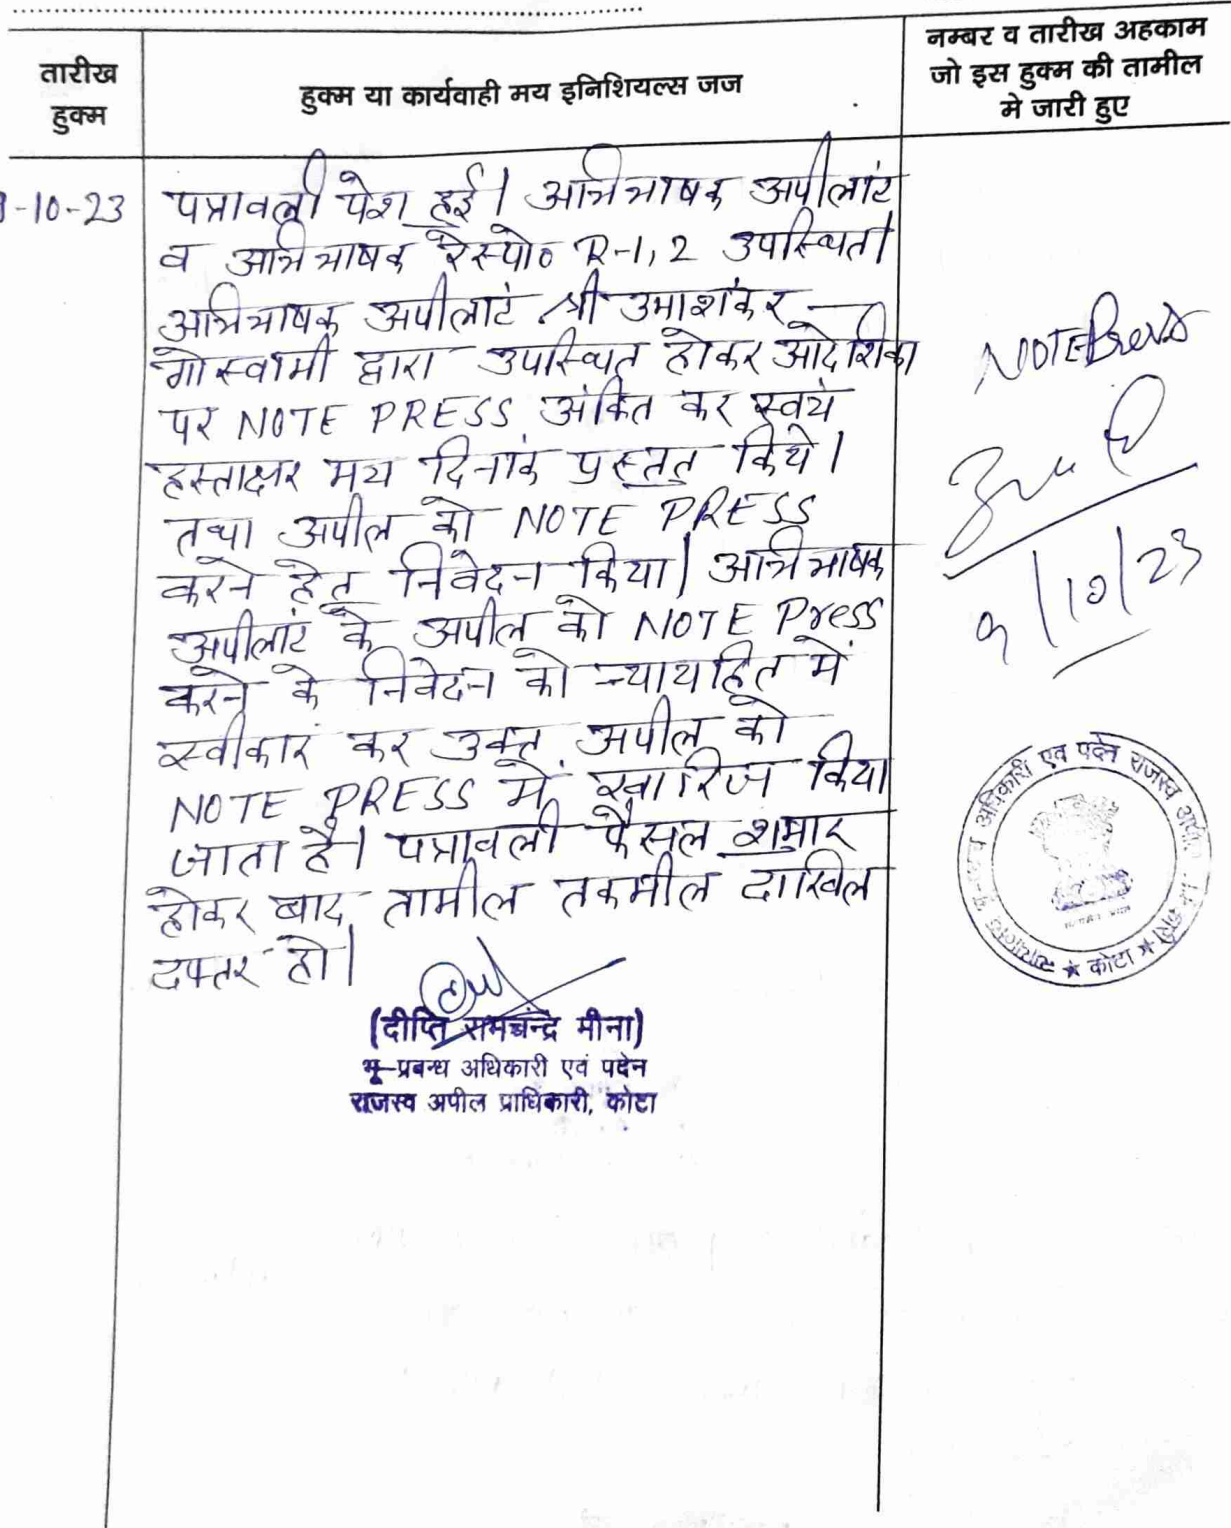 तारीख
हुक्म
हुक्म या कार्यवाही मय इनिशियल्स जज
नम्बर व तारीख अहकाम
जो इस हुक्म की तामील
मे जारी हुए
9-10-23
पत्रावली पेश हुई। अभिभाषक अपीलांट
व अभिभाषक रेस्पो० R-1,2 उपस्थित।
अभिभाषक अपीलांट श्री उमाशंकर
गोस्वामी द्वारा उपस्थित होकर आदेशिका
पर NOTE PRESS अंकित कर स्वयं
हस्ताक्षर मय दिनांक प्रस्तुत किये।
तथा अपील को NOTE PRESS
करने हेतु निवेदन किया। अभिभाषक
अपीलांट के अपील को NOTE Press
करने के निवेदन को न्यायहित में
स्वीकार कर उक्त अपील को
NOTE PRESS में खारिज किया
जाता है। पत्रावली फैसल शुमार
होकर बाद तामील तकमील दाखिल
दफ्तर हो।
(दीप्ति रामचन्द्र मीना)
भू-प्रबन्ध अधिकारी एवं पदेन
राजस्व अपील प्राधिकारी, कोटा
NOTE Press
9/10/23
अधिकारी एवं पदेन राजस्व अपील
★ कोटा ★